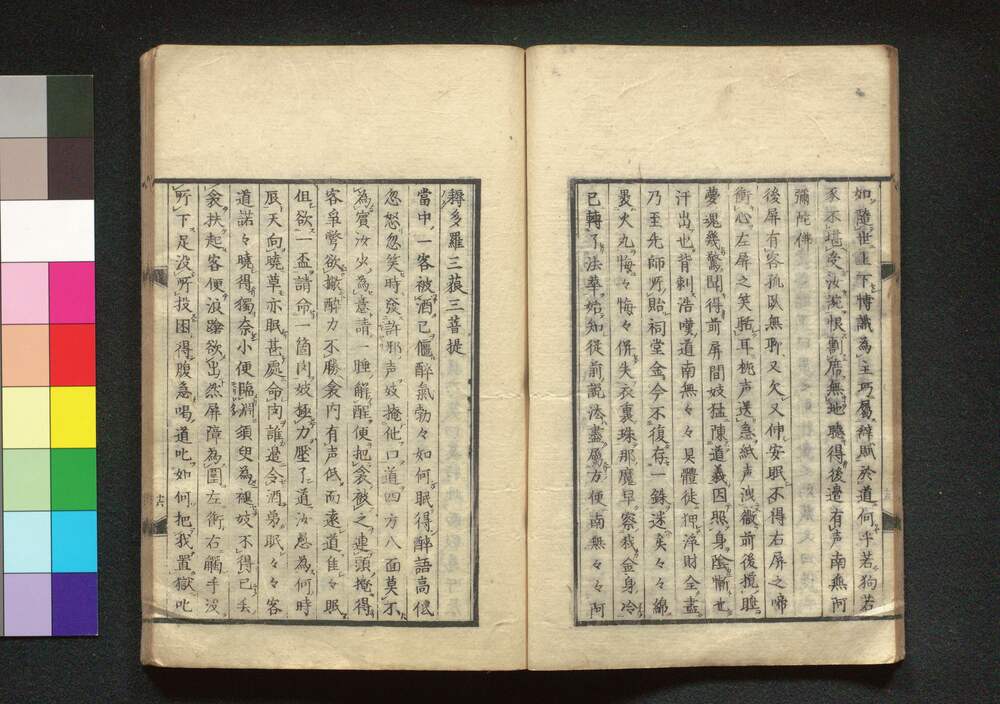 如隨世上下博識為主巧屬辭賦於道何乎若狗若
豕不堪令汝淚恨劃席無地聽得後邊有声南無阿
彌陀佛
後屏有客孤臥無聊又欠又伸安眠不得右屏之啼
衝心左屏之笑聒耳桃声送急紙声洩微前後攪睡
夢魂幾驚聞得前屏間妓猛陳道義因照身陰慚世
汗出也背剌浩嘆道南無々々具體徒押淨財全盡
乃至先師所貽祠堂金今不復存一銖迷矣々々綿
畏火丸悔々悔々併失衣裏珠那魔早察我金身冷
已轉了法華始知從前説法盡屬方便南無々々阿
耨多羅三藐三菩提
當中一客被酒已偃醉氣勃々如何眠得醉語高低
忽怒忽笑時發許邪声妓掩他口道四方八面莫不
為賓汝少為意請一睡解酲便把衾被之連頭掩得
客奭弊欲撤醉力不勝衾内有声低而遠道隹々眠
但欲一盃請命一箇肉妓極力壓了道汝思為何時
辰天向曉草亦眠甚處命肉誰邊合酒弟眠々々客
道諾々曉得獨奈小便臨澗須臾為褪妓不得已手
衾扶起客便浪蹌欲出然屏障為圍左衝右觸手没
所下足没所投困得腹急喝道叱如何把我置獄叱
六